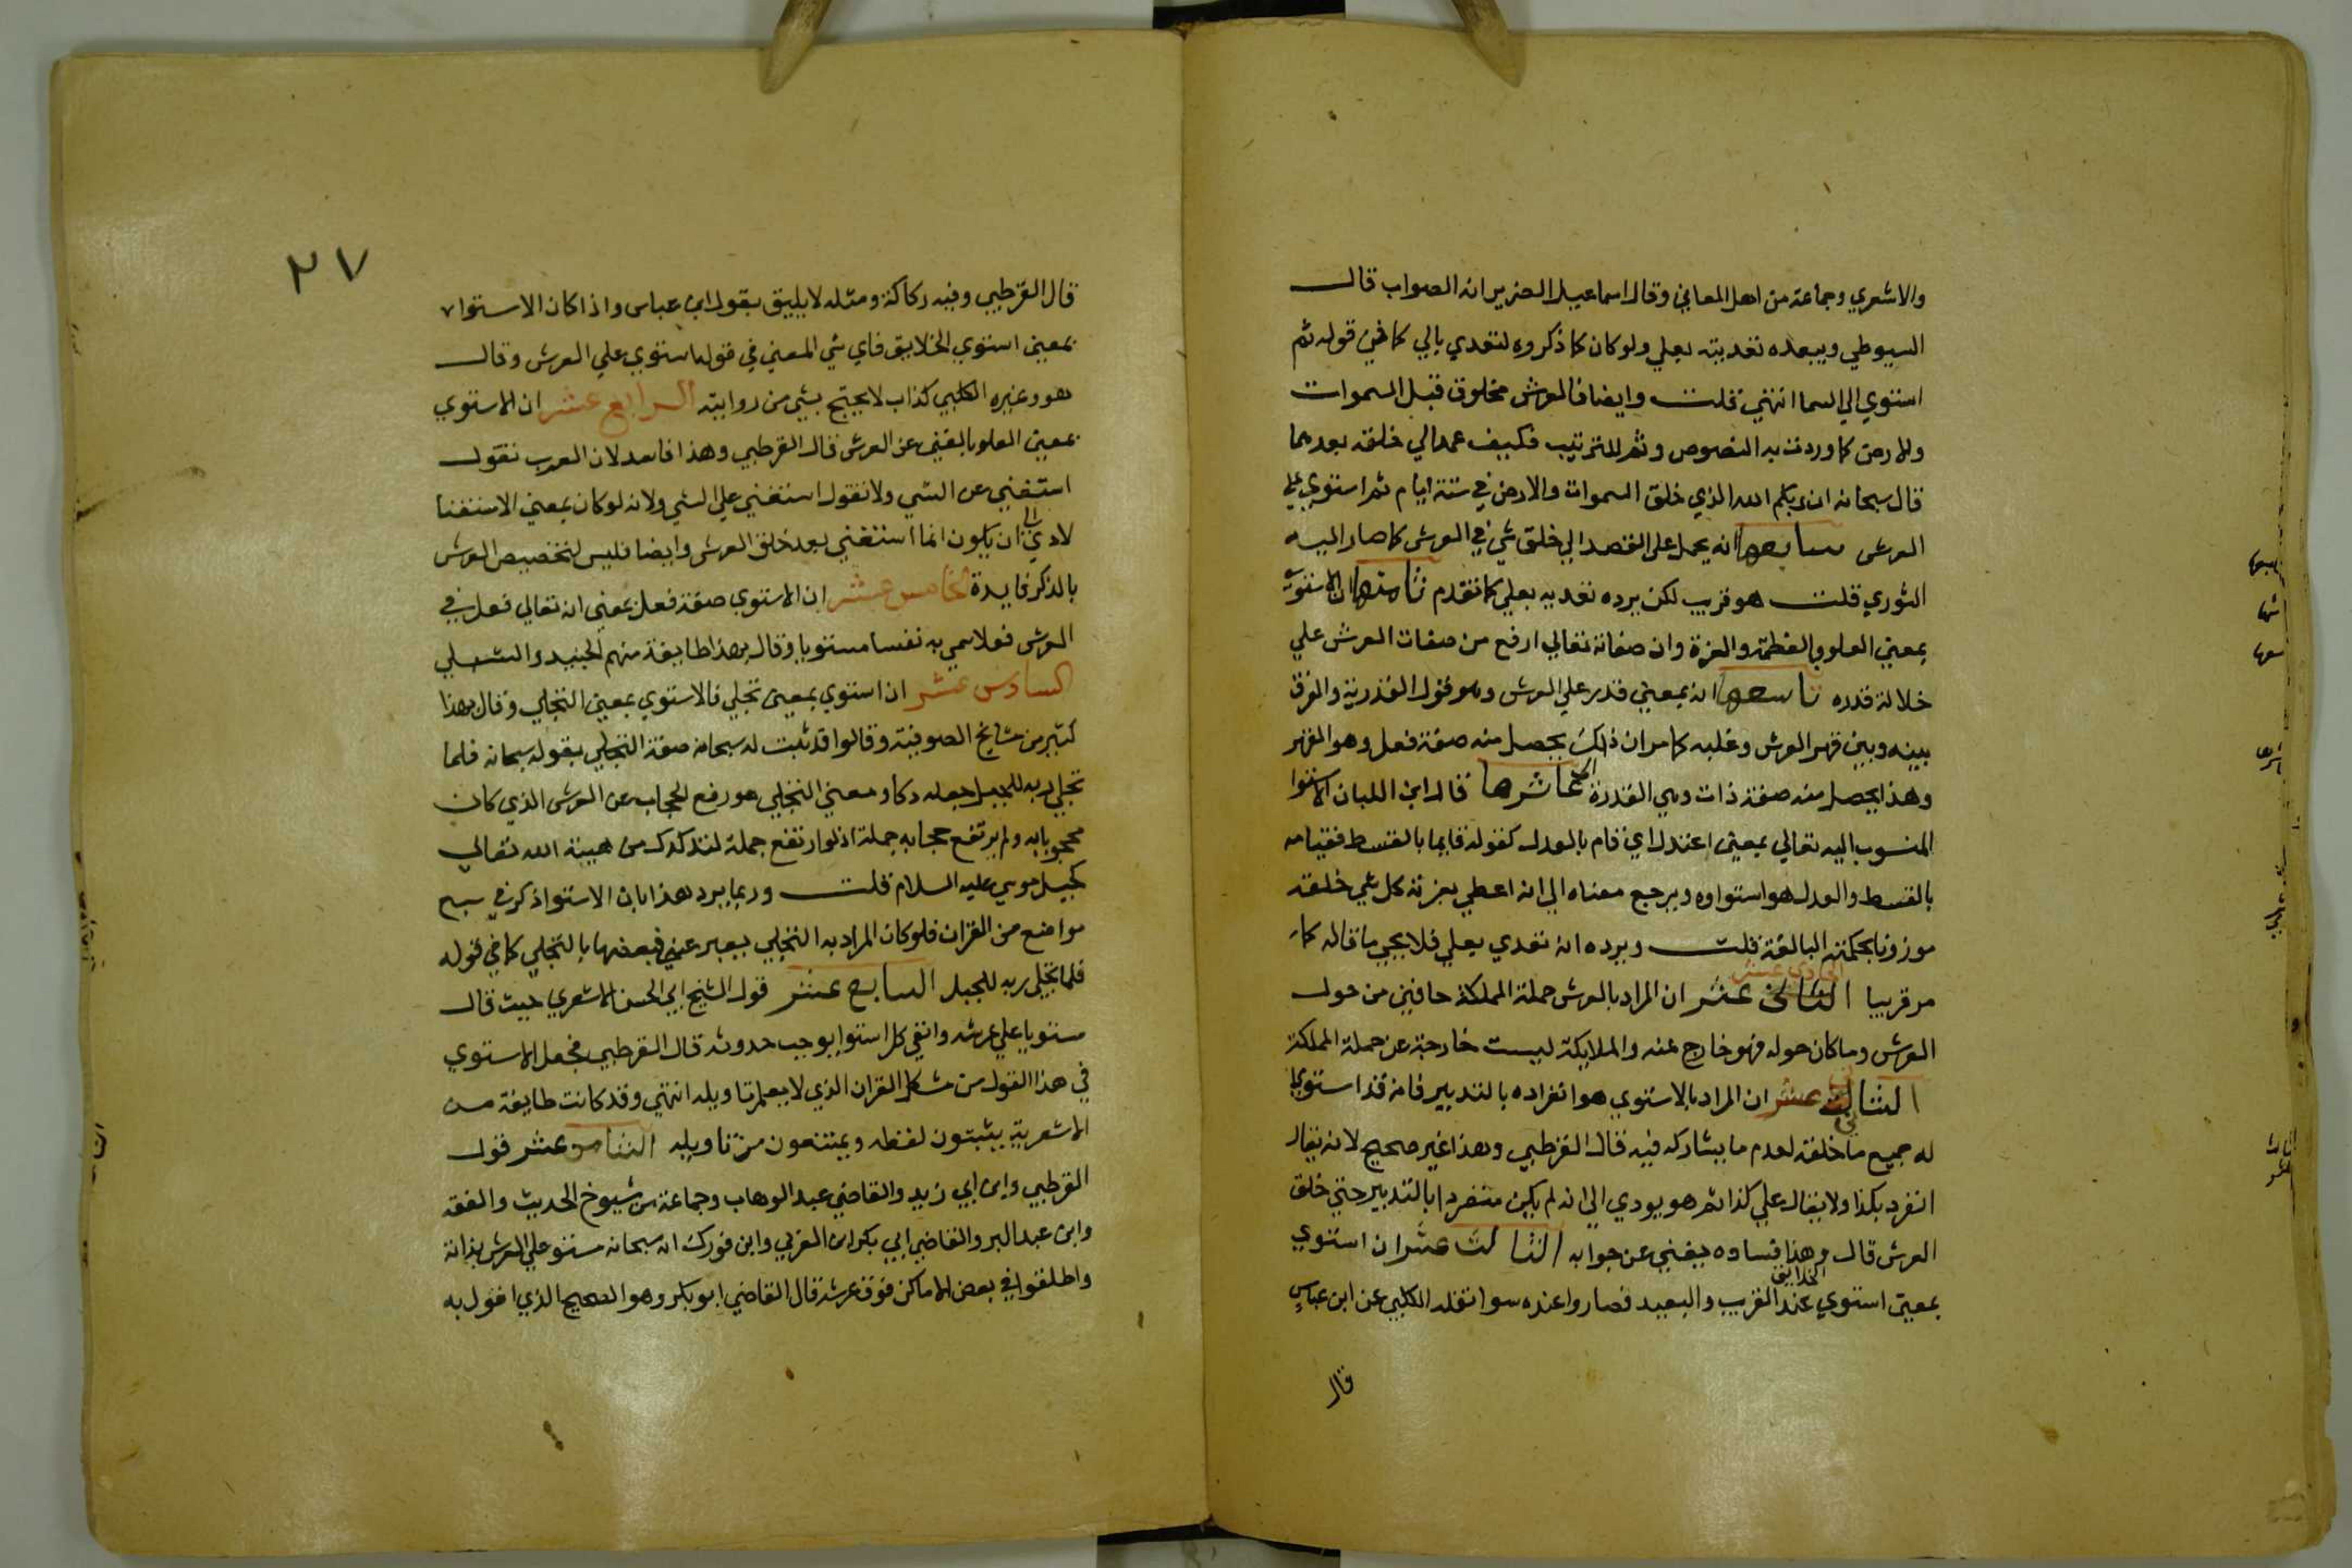 والاشعري وجماعة من اهل المعاني وقال اسماعيل الضرير انه الصواب قال
السيوطي ويبعده تعديته بعلي ولو كان كما ذكروه لتعدي بالي كما في قوله ثم
استوي الي السما انتهي قلت وايضا فالعرش مخلوق قبل السموات
والارض كما وردت به النصوص وثم للترتيب فكيف عمد الي خلقه بعدهما
قال سبحانه ان ربكم الله الذي خلق السموات والارض في ستة ايام ثم استوي علي
العرش سابعها انه يحمل علي القصد الي خلق شي في العرش كما صار اليه
الثوري قلت هو قريب لكن يرده تعديه بعلي كما تقدم ثامنها ان الاستوي
بمعني العلو والعظمة والعزة وان صفاته تعالي ارفع من صفات العرش علي
جلالة قدره تاسعها انه بمعني قدر علي العرش وهو قول القدرية والفرق
بينه وبين قهر العرش وغلبه كما مر ان ذلك يحصل منه صفة فعل وهو القهر
وهذا يحصل منه صفة ذات وهي القدرة عاشرها قال ابن اللبان الاستوا
المنسوب اليه تعالي بمعني اعتدل اي قام بالعدل كقوله قايما بالقسط فقيامه
بالقسط والعدل هو استواوه ويرجع معناه الي انه اعطي بعزته كل شي خلقه
موزونا بحكمته البالغة قلت ويرده انه تعدي بعلي فلا يجي ما قاله كما
مر قريبا الحادي عشر ان المراد بالعرش جملة المملكة حافين من حول
العرش وما كان حوله فهو خارج عنه والملايكة ليست خارجة عن جملة المملكة
الثاني عشر ان المراد بالاستوي هو انفراده بالتدبير فانه قد استوي
له جميع ما خلقه لعدم ما يشاركه فيه قال القرطبي وهذا غير صحيح لانه يقال
انفرد بكذا ولا يقال علي كذا ثم هو يودي الي انه لم يكن منفردا بالتدبير حتي خلق
العرش قال وهذا فساده يغني عن جوابه الثالث عشر ان استوي
بمعني استوي عند الخلايق القريب والبعيد فصاروا عنده سوا نقله الكلبي عن ابن عباس
قال
٢٧
قال القرطبي وفيه ركاكة ومثله لا يليق بقول ابن عباس واذا كان الاستوا
بمعني استوي الخلايق فاي شي المعني في قوله استوي علي العرش وقال
هو وغيره الكلبي كذاب لا يحتج بشي من روايته الرابع عشر ان الاستوي
بمعني العلو بالغني عن العرش قال القرطبي وهذا فاسد لان العرب تقول
استغني عن الشي ولا تقول استغني علي الشي ولانه لو كان بمعني الاستغنا
لادي الي ان يكون انما استغني بعد خلق العرش وايضا فليس لتخصيص العرش
بالذكر فايدة الخامس عشر ان الاستوي صفة فعل بمعني انه تعالي فعل في
العرش فعلا سمي به نفسا مستويا وقال بهذا طايفة منهم الجنيد والشبلي
السادس عشر ان استوي بمعني تجلي فالاستوي بمعني التجلي وقال بهذا
كثير من مشايخ الصوفية وقالوا قد ثبت له سبحانه صفة التجلي بقوله سبحانه فلما
تجلي ربه للجبل جعله دكا ومعني التجلي هو رفع الحجاب عن العرش الذي كان
محجوبا به ولم يرتفع حجابه جملة اذ لو ارتفع جملة لتدكدك من هيبة الله تعالي
كجبل موسي عليه السلام قلت وربما يرد هذا بان الاستوا ذكر في سبع
مواضع من القران فلو كان المراد به التجلي ليعبر عنه في بعضها بالتجلي كما في قوله
فلما تجلي ربه للجبل السابع عشر قول الشيخ ابي الحسن الاشعري حيث قال
مستويا علي عرشه وانفي كل استوا يوجب حدوثه قال القرطبي فجعل الاستوي
في هذا القول من مشكل القران الذي لا يعلم تاويله انتهي وقد كانت طايفة من
الاشعرية يثبتون لفظه ويمتنعون من تاويله الثامن عشر قول
القرطبي وابن ابي زيد والقاضي عبد الوهاب وجماعة من شيوخ الحديث والفقه
وابن عبد البر والقاضي ابي بكر ابن العربي وابن فورك انه سبحانه مستو علي العرش بذاته
واطلقوا في بعض الاماكن فوق عرشه قال القاضي ابو بكر وهو الصحيح الذي اقول به